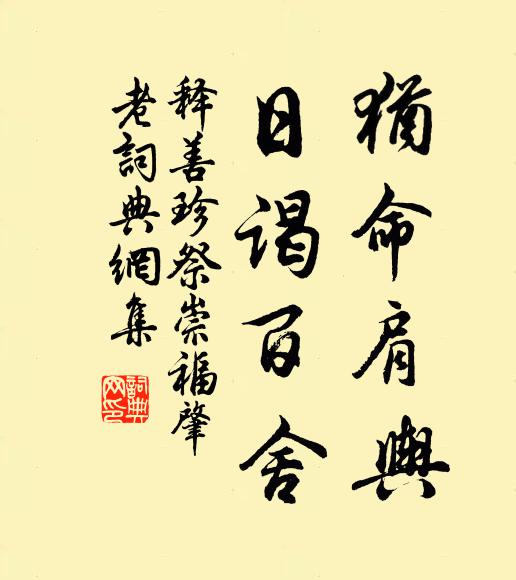 猶命肩輿
日谒百舍
释善珍祭崇福肇
老詞典網集
詞典网印